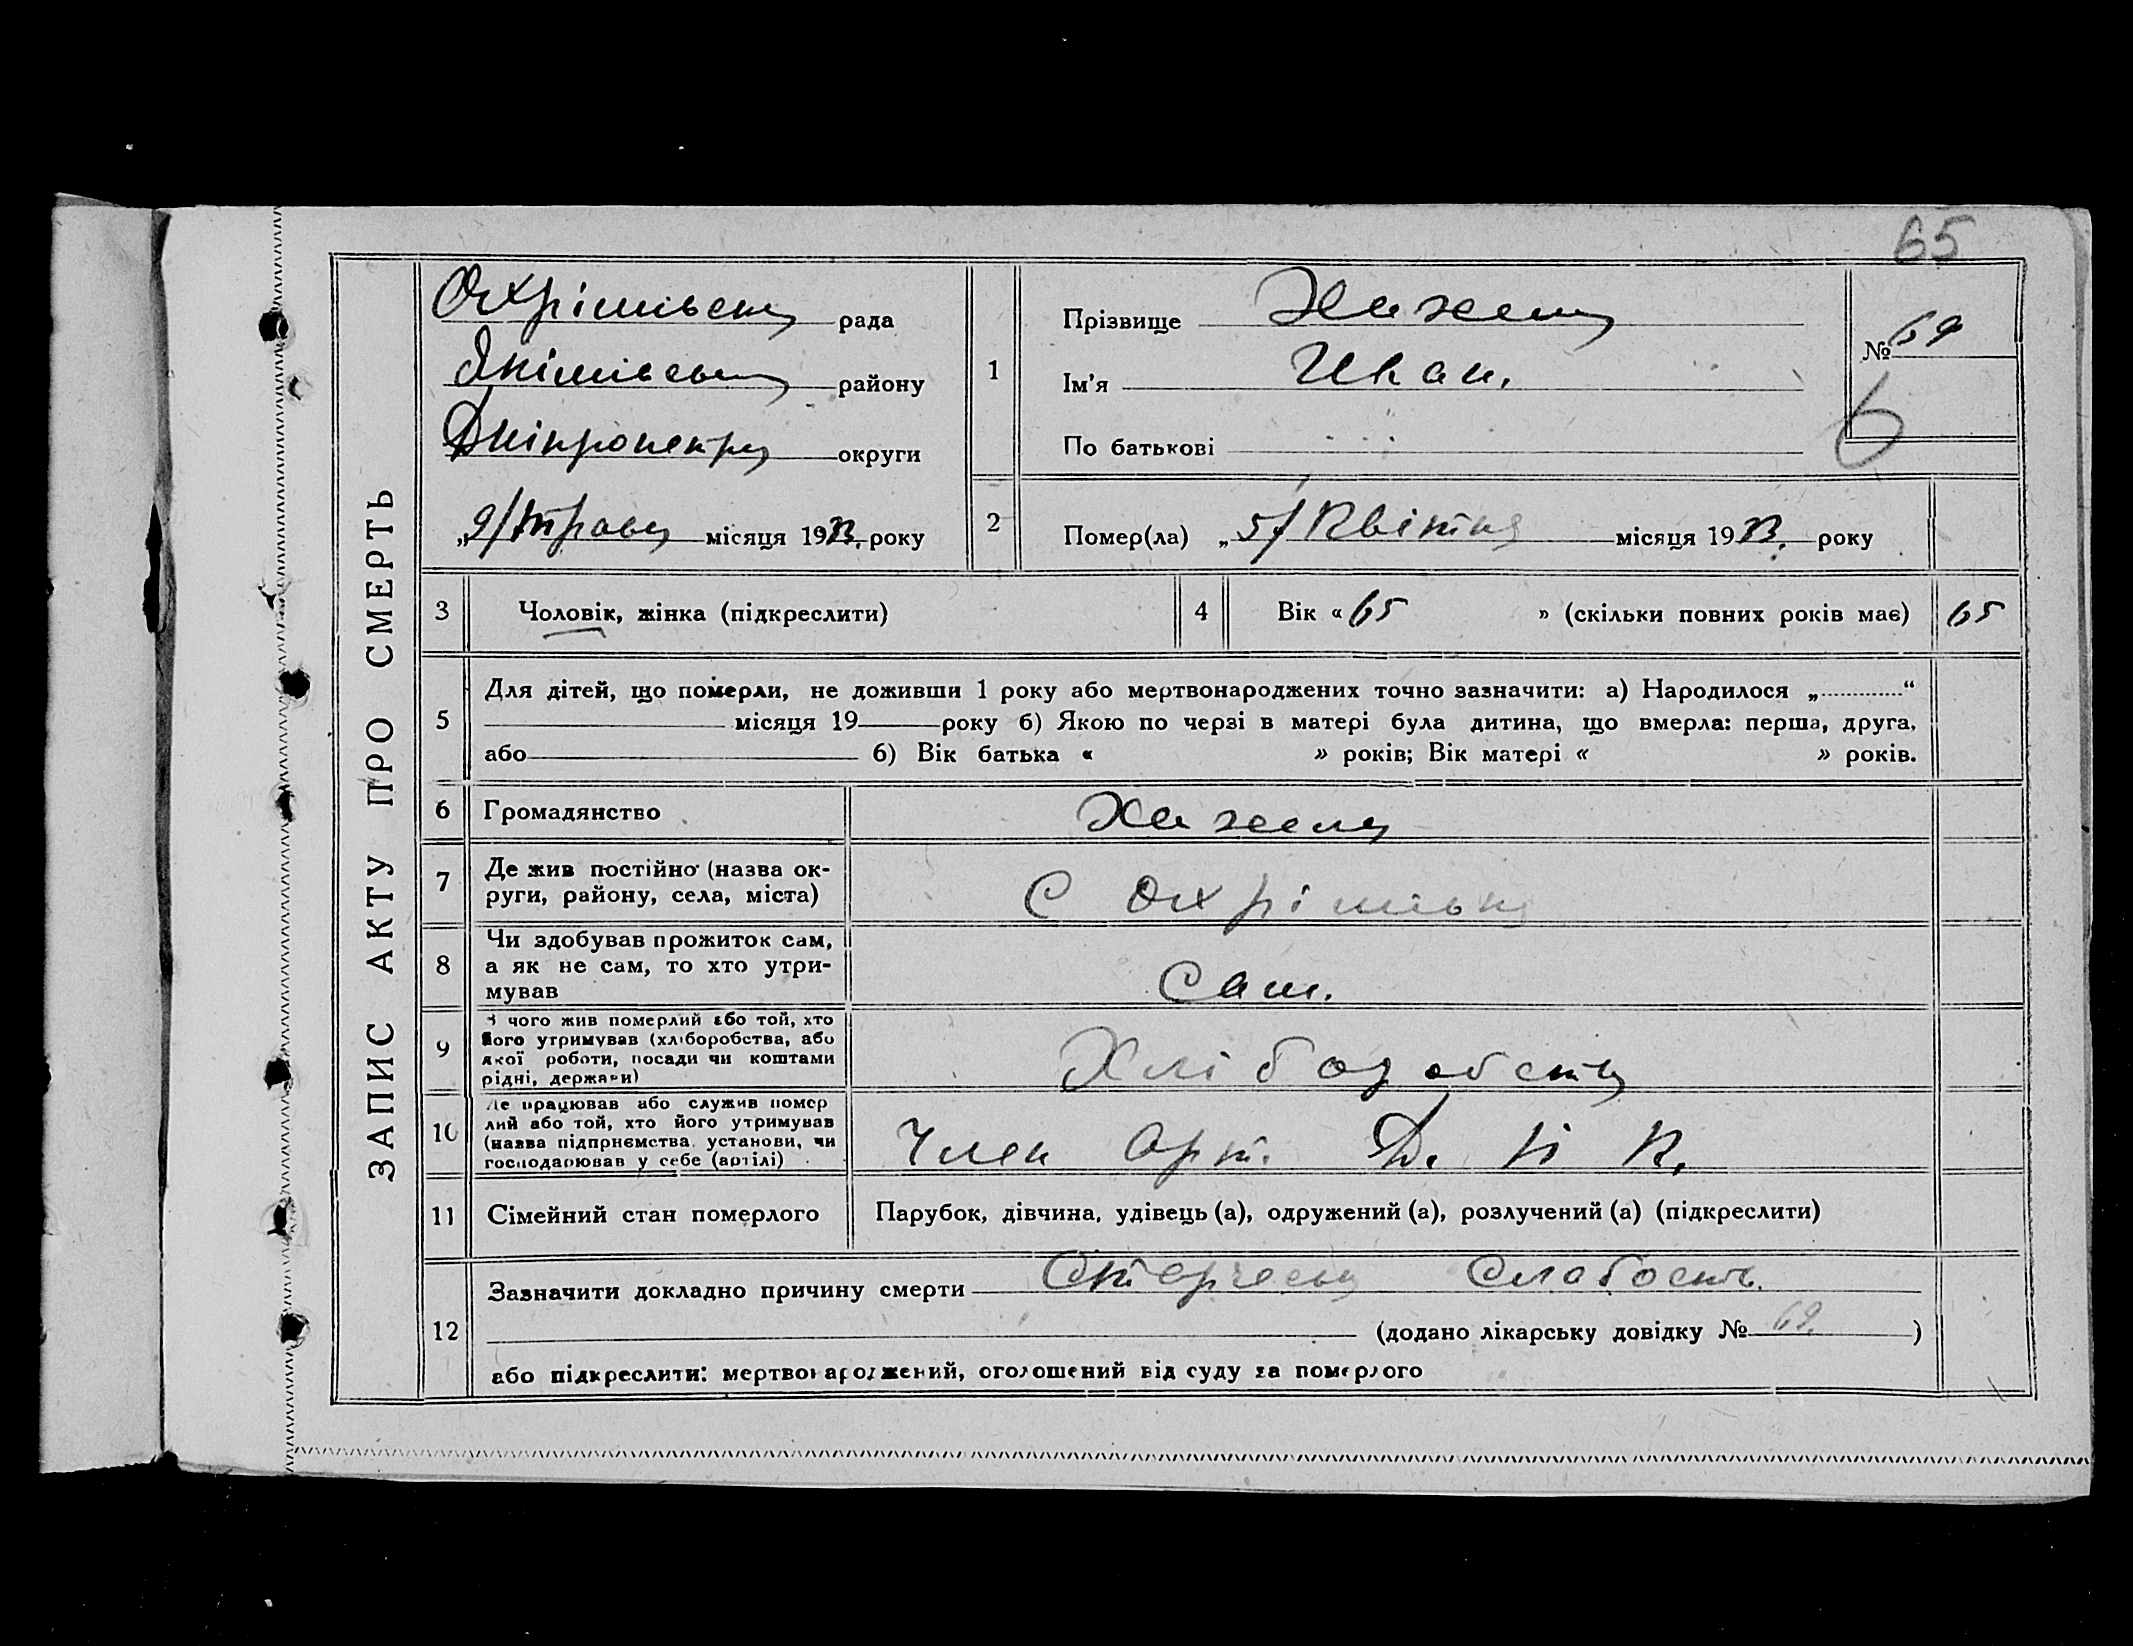 65
ЗАПИС АКТУ ПРО СМЕРТЬ
Охрімівська рада
Якімівська району
Дніпропетр округи
„9/травня місяця 1933. року
1
Прізвище
Ім'я Иван.
По батькові
№ 69
6
2
Помер(ла) „5/ Квітня місяця 1933. року
3 Чоловік, жінка (підкреслити)
4 Вік « 65 » (скільки повних років має) 65
5
Для дітей, що померли, не доживши 1 року або мертвонароджених точно зазначити: а) Народилося „ “
місяця 19 року б) Якою по черзі в матері була дитина, що вмерла: перша, друга,
або б) Вік батька « » років; Вік матері « » років.
6 Громадянство
7 Де жив постійно (назва ок-
руги, району, села, міста)
С Охрімівка
8 Чи здобував прожиток сам,
а як не сам, то хто утри-
мував
Сам.
9 З чого жив померлий або той, хто
його утримував (хліборобства, або
якої роботи, посади чи коштами
рідні, держави)
10 Де працював або служив помер
лий або той, хто його утримував
(назва підприємства, установи, чи
господарював у себе (артілі)
Член Арт. Д. Н К.
11 Сімейний стан померлого
Парубок, дівчина, удівець (а), одружений (а), розлучений (а) (підкреслити)
12
Зазначити докладно причину смерти Старческа Слабость.
(додано лікарську довідку № 69. )
або підкреслити: мертвонароджений, оголошений від суду за померлого